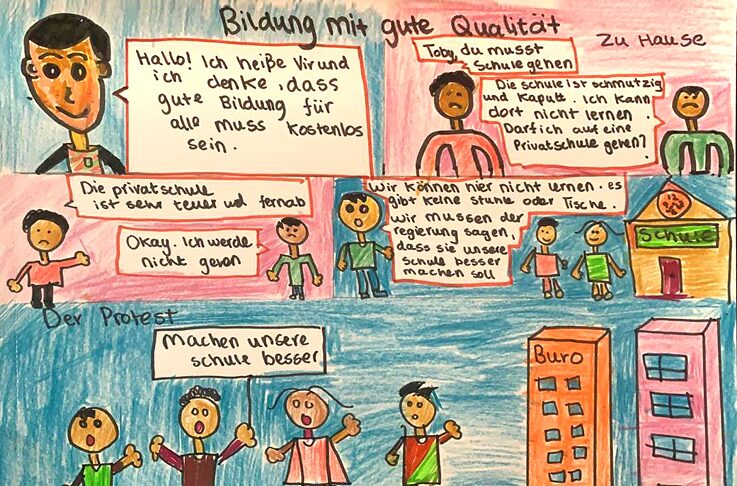 Bildung mit gute Qualität
Hallo! Ich heiße Vir und
ich denke, dass
gute Bildung für
alle muss kostenlos
sein.
Zu Hause
Toby, du musst
Schule gehen
Die schule ist schmutzig
und kaputt. Ich kann
dort nicht lernen.
Darf ich auf eine
Privatschule gehen?
Die privatschule
ist sehr teuer und fernab
Okay. Ich werde
nicht gehen
Wir können hier nicht lernen. es
gibt keine stuhle oder Tische.
wir mussen der
regierung sagen,
dass sie unsere
schule besser
machen soll
Schule
Der Protest
Machen unsere
schule besser
Buro